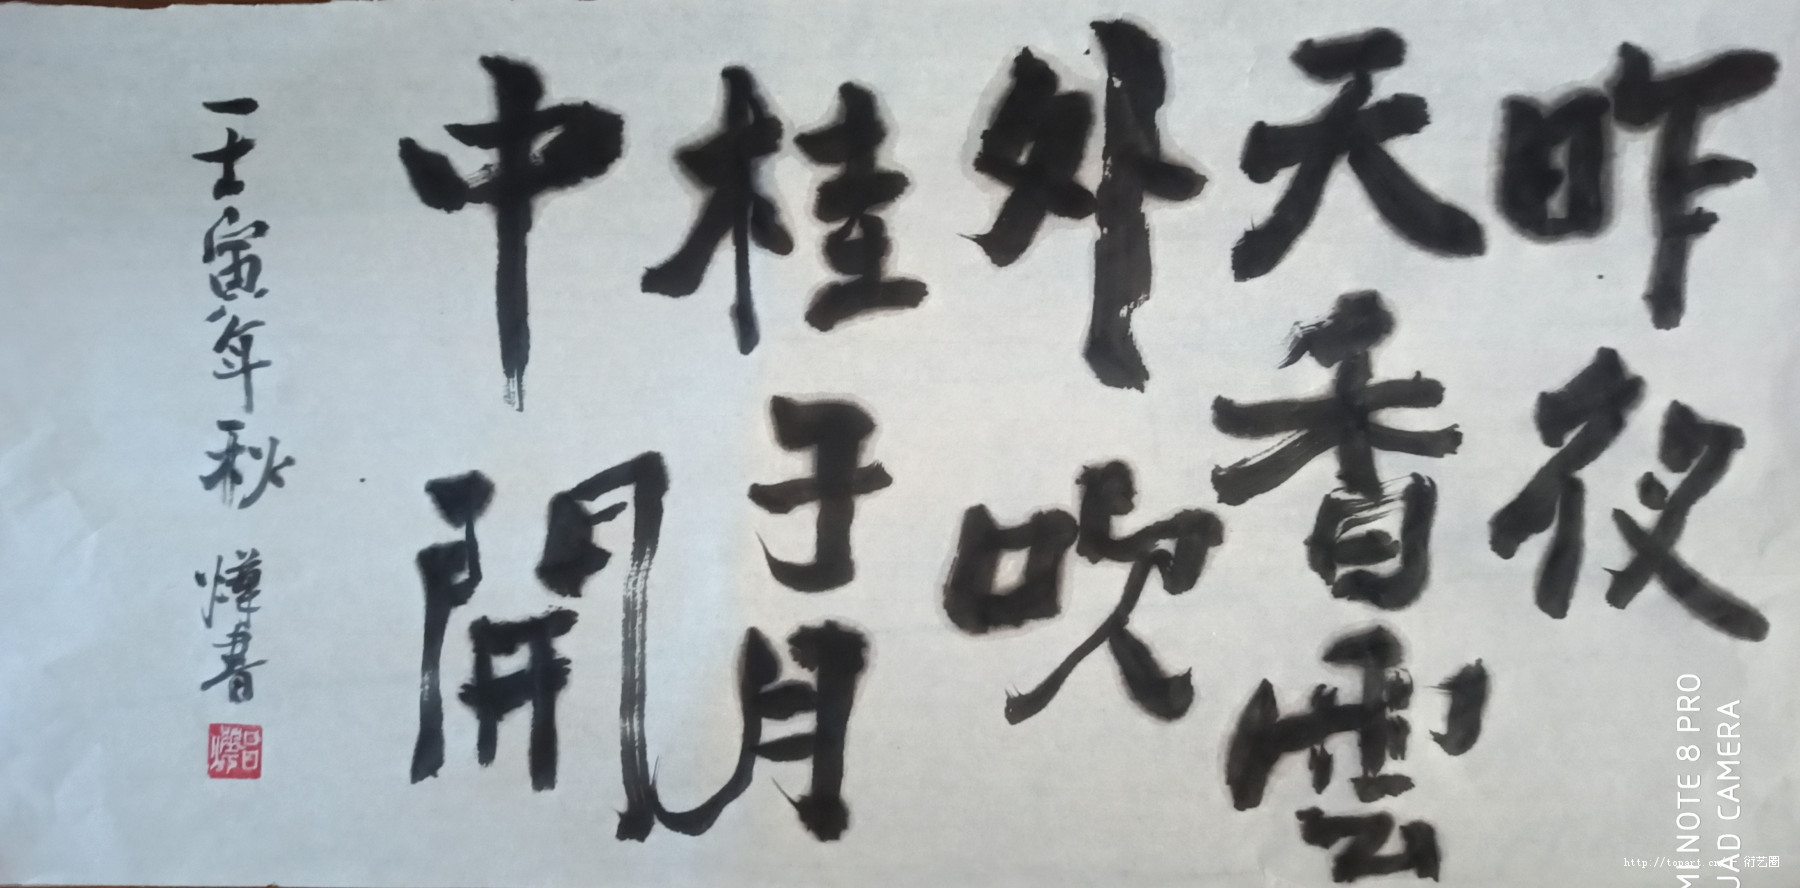 昨夜
天香雲
外吹
桂子月
中開
壬寅年秋 燁書
MI NOTE 8 PRO
UAD CAMERA
衍艺圈